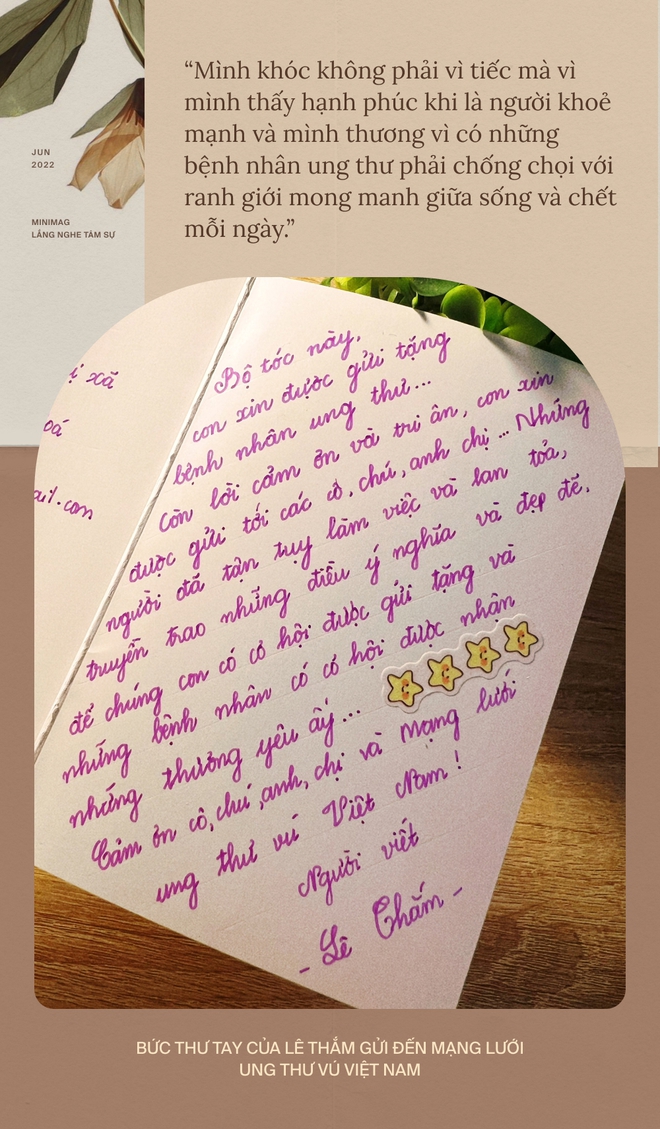 “Mình khóc không phải vì tiếc mà vì
mình thấy hạnh phúc khi là người khoẻ
mạnh và mình thương vì có những
bệnh nhân ung thư phải chống chọi với
ranh giới mong manh giữa sống và chết
mỗi ngày.”
JUN
2022
MINIMAG
LẮNG NGHE TÂM SỰ
xã
Bộ tóc này,
con xin được gửi tặng
bệnh nhân ung thư...
Còn lời cảm ơn và tri ân, con xin
được gửi tới các cô, chú, anh chị... Những
người đã tận tụy làm việc và lan tỏa,
truyền trao những điều ý nghĩa và đẹp đẽ,
để chúng con có cơ hội được gửi tặng và
những bệnh nhân có cơ hội được nhận
những thương yêu ấy...
Cảm ơn cô, chú, anh, chị và Mạng lưới
ung thư vú Việt Nam!
Người viết
- Lê Thắm -
BỨC THƯ TAY CỦA LÊ THẮM GỬI ĐẾN MẠNG LƯỚI
UNG THƯ VÚ VIỆT NAM